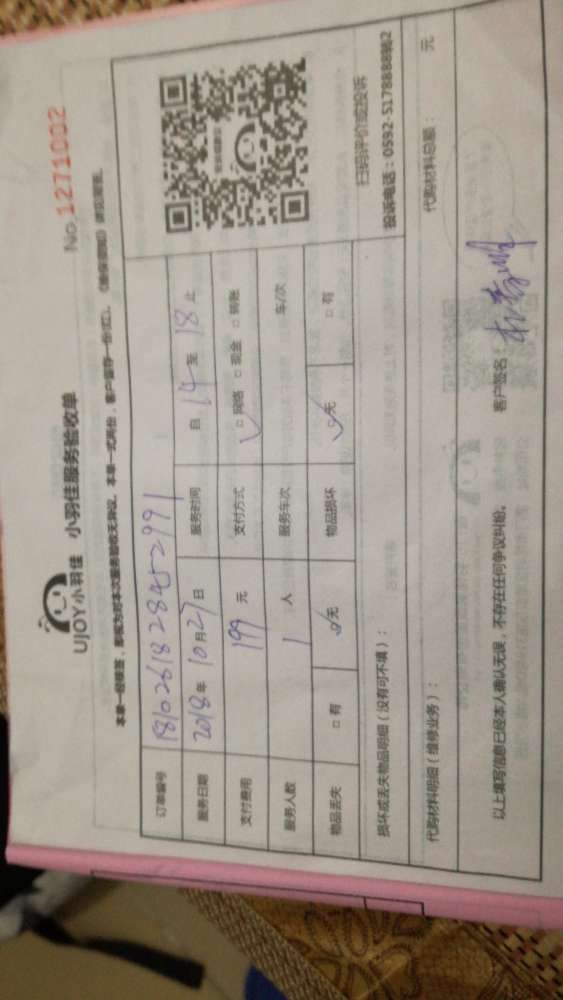 UJOY小羽佳 小羽佳服务验收单
No 1271002
本单一经核签，即视为对本次服务验收无异议。本单一式两份，客户留存一份(红)。
订单编号 1810261828452991
服务日期 2018年10月27日 服务时间 自14至18止
支付费用 199元 支付方式 □网络 □现金 □转账
服务人数 1人 服务车次 车/次
物品丢失 □有 □无 物品损坏 □无 □有
扫码评价或投诉
投诉电话：0592-5178888转2
损坏或丢失物品明细（没有可不填）：
代购材料明细（维修业务）： 代购材料总额： 元
以上填写信息已经本人确认无误，不存在任何争议纠纷。 客户签名：